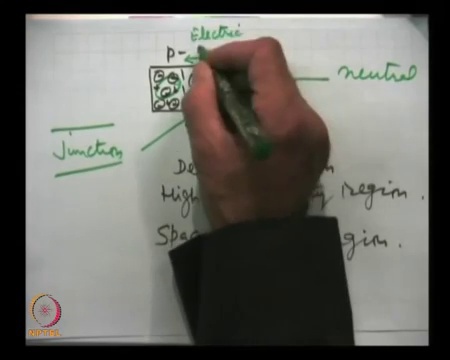 Electric
p-
neutral
Junction
De
High region.
Spa gion.
NPTEL